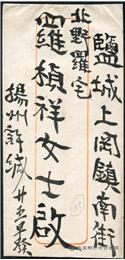 鹽城上岡鎮南街
北野羅宅
羅楨祥女士啟
揚州許緘 廿五早發